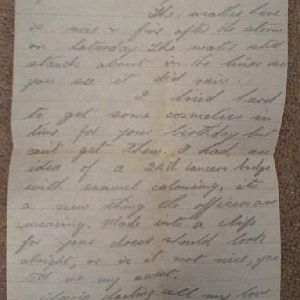 The weather here
is nice & fine after the storm
on Saturday. The water still
stands about in the lines so
you see it did rain.
I tried hard
to get some cosmetics in
time for your birthday but
can't get them. I had an
idea of a 24th Lancers badge
with enamel colouring, its
a new thing the officers are
wearing. Made into a clasp
for your dress should look
alright, or is it not nice, you
tell me my sweet.
Cheerio darling all my love